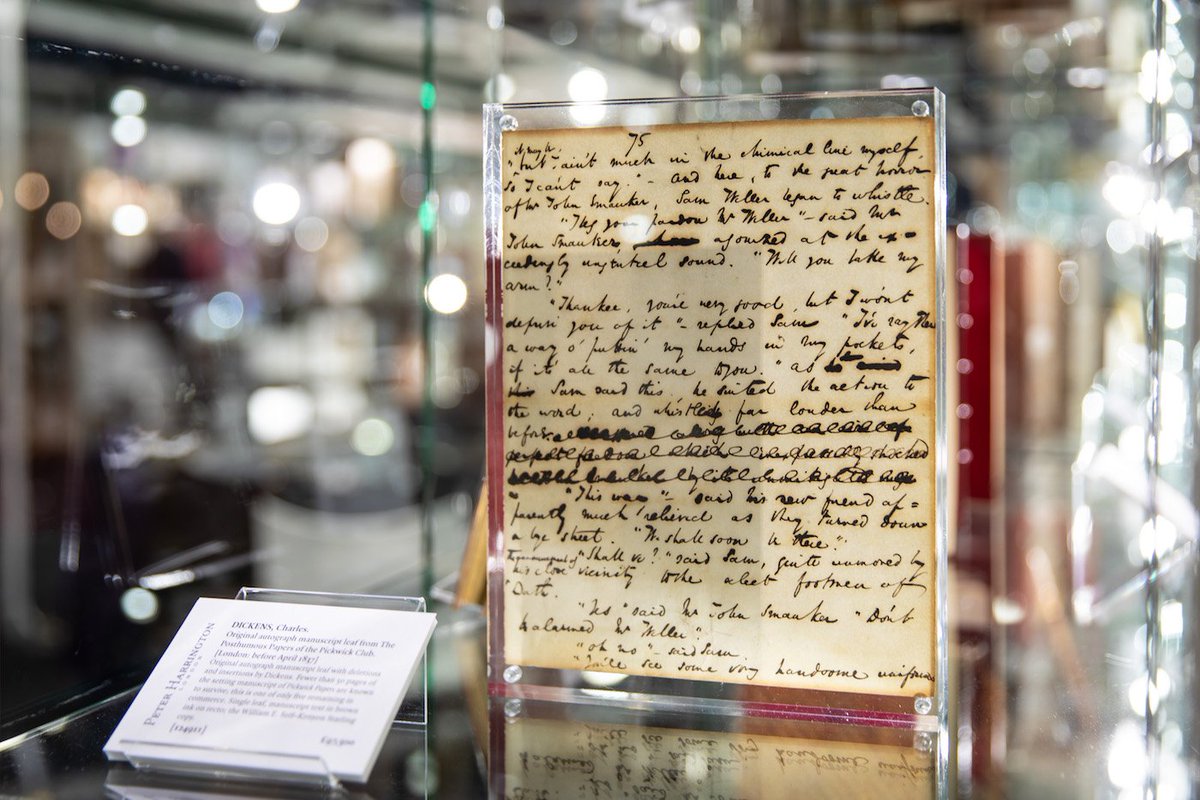 75
"but I ain't much in the chimical line myself,
so I can't say." – And here, to the great horror
of Mr John Smauker, Sam Weller began to whistle.
"I beg your pardon Mr Weller" – said Mr
John Smauker, agonized at the ex=
ceedingly ungenteel sound. "Will you take my
arm?"
"Thankee, you're very good, but I won't
deprive you of it" – replied Sam "I've rayther
a way o' puttin' my hands in my pockets,
if it's all the same to you." As
Sam said this, he suited the action to
the word, and whistled far louder than
before.
"This way" – said his new friend ap=
parently much relieved as they turned down
a bye street. "We shall soon be there."
"Shall we?" said Sam, quite unmoved by
his close vicinity to the select footmen of
Bath.
"Yes" said Mr John Smauker "Don't
be alarmed Mr Weller"
"Oh no" – said Sam
"You'll see some very handsome uniforms
PETER HARRINGTON
LONDON
DICKENS, Charles.
Original autograph manuscript leaf from The
Posthumous Papers of the Pickwick Club.
[London: before April 1837]
Original autograph manuscript leaf with deletions
and insertions by Dickens. Fewer than 50 pages of
the setting manuscript of Pickwick Papers are known
to survive; this is one of only five remaining in
commerce. Single leaf, manuscript text in brown
ink on recto; the William E. Self-Kenyon Starling
copy.
[124911]